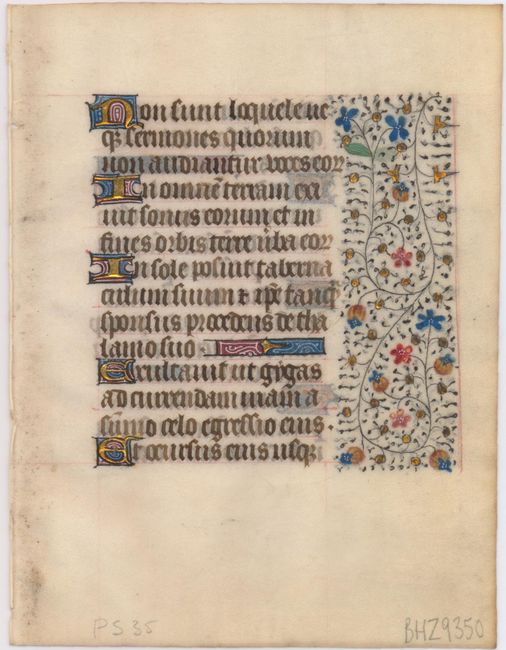 Non sunt loquele ne
q̃ sermones quorum
non audiantur voces eor̃
In omnẽ terram exi
uit sonus eorum et in
fines orbis terre ũba eor̃
In sole posuit taberna
culum suum ⁊ ip̃e tanq̃
sponsus procedens de tha
lamo suo
Exultauit ut gygas
ad currendam uiam a
sũmo celo egressio eius.
Et occursus eius usq̃
PS 35
BHZ9350